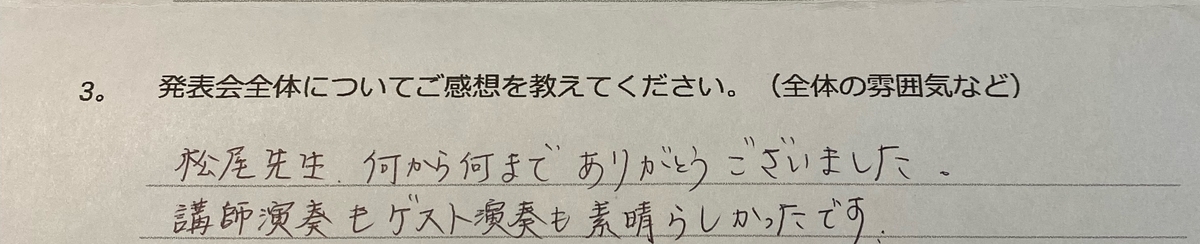 3。 発表会全体についてご感想を教えてください。（全体の雰囲気など）
松尾先生、何から何までありがとうございました。
講師演奏もゲスト演奏も素晴らしかったです。